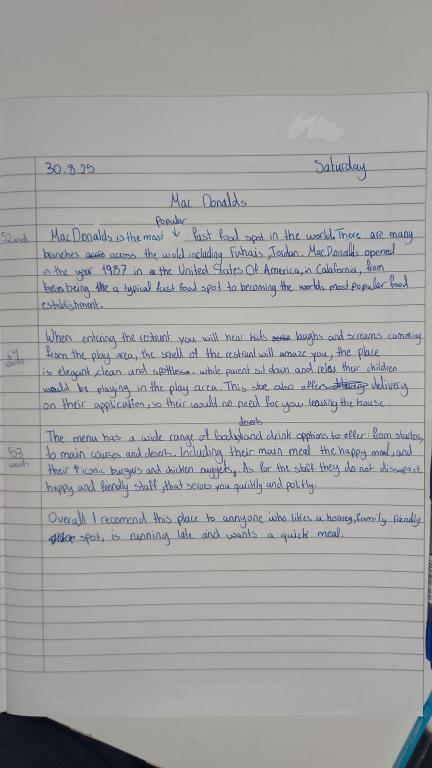 30.8.25 Saturday
Mac Donalds
popular
52 words MacDonalds is the most ↓ fast food spot in the world. There are many
branches across the wold including Fuhais, Jordan. MacDonalds opened
in the year 1987 in the United States Of America, in Calafornia, from
being a typical fast food spot to becoming the worlds most popular food
establishment.
When entering the restrunt you will hear kids laughs and screams comming
64 words from the play area, the smell of the restrunt will amaze you, the place
is elegant, clean and spotlless. while parent sit down and relax their children
would be playing in the play area. This also offers delivery
on their application, so their would no need for you leaving the house.
deserts
The menu has a wide range of foods, and drink opptions to offer from starters,
53 words to main courses and deserts. Including their main meal the happy meal, and
their iconic burgurs and chicken nuggets, As for the staff they do not dissapoint,
happy and friendly staff, that serves you quickly and politly.
Overall I recomend this place to unnyone who likes a homey, family friendly
spot, is running late and wants a quick meal.